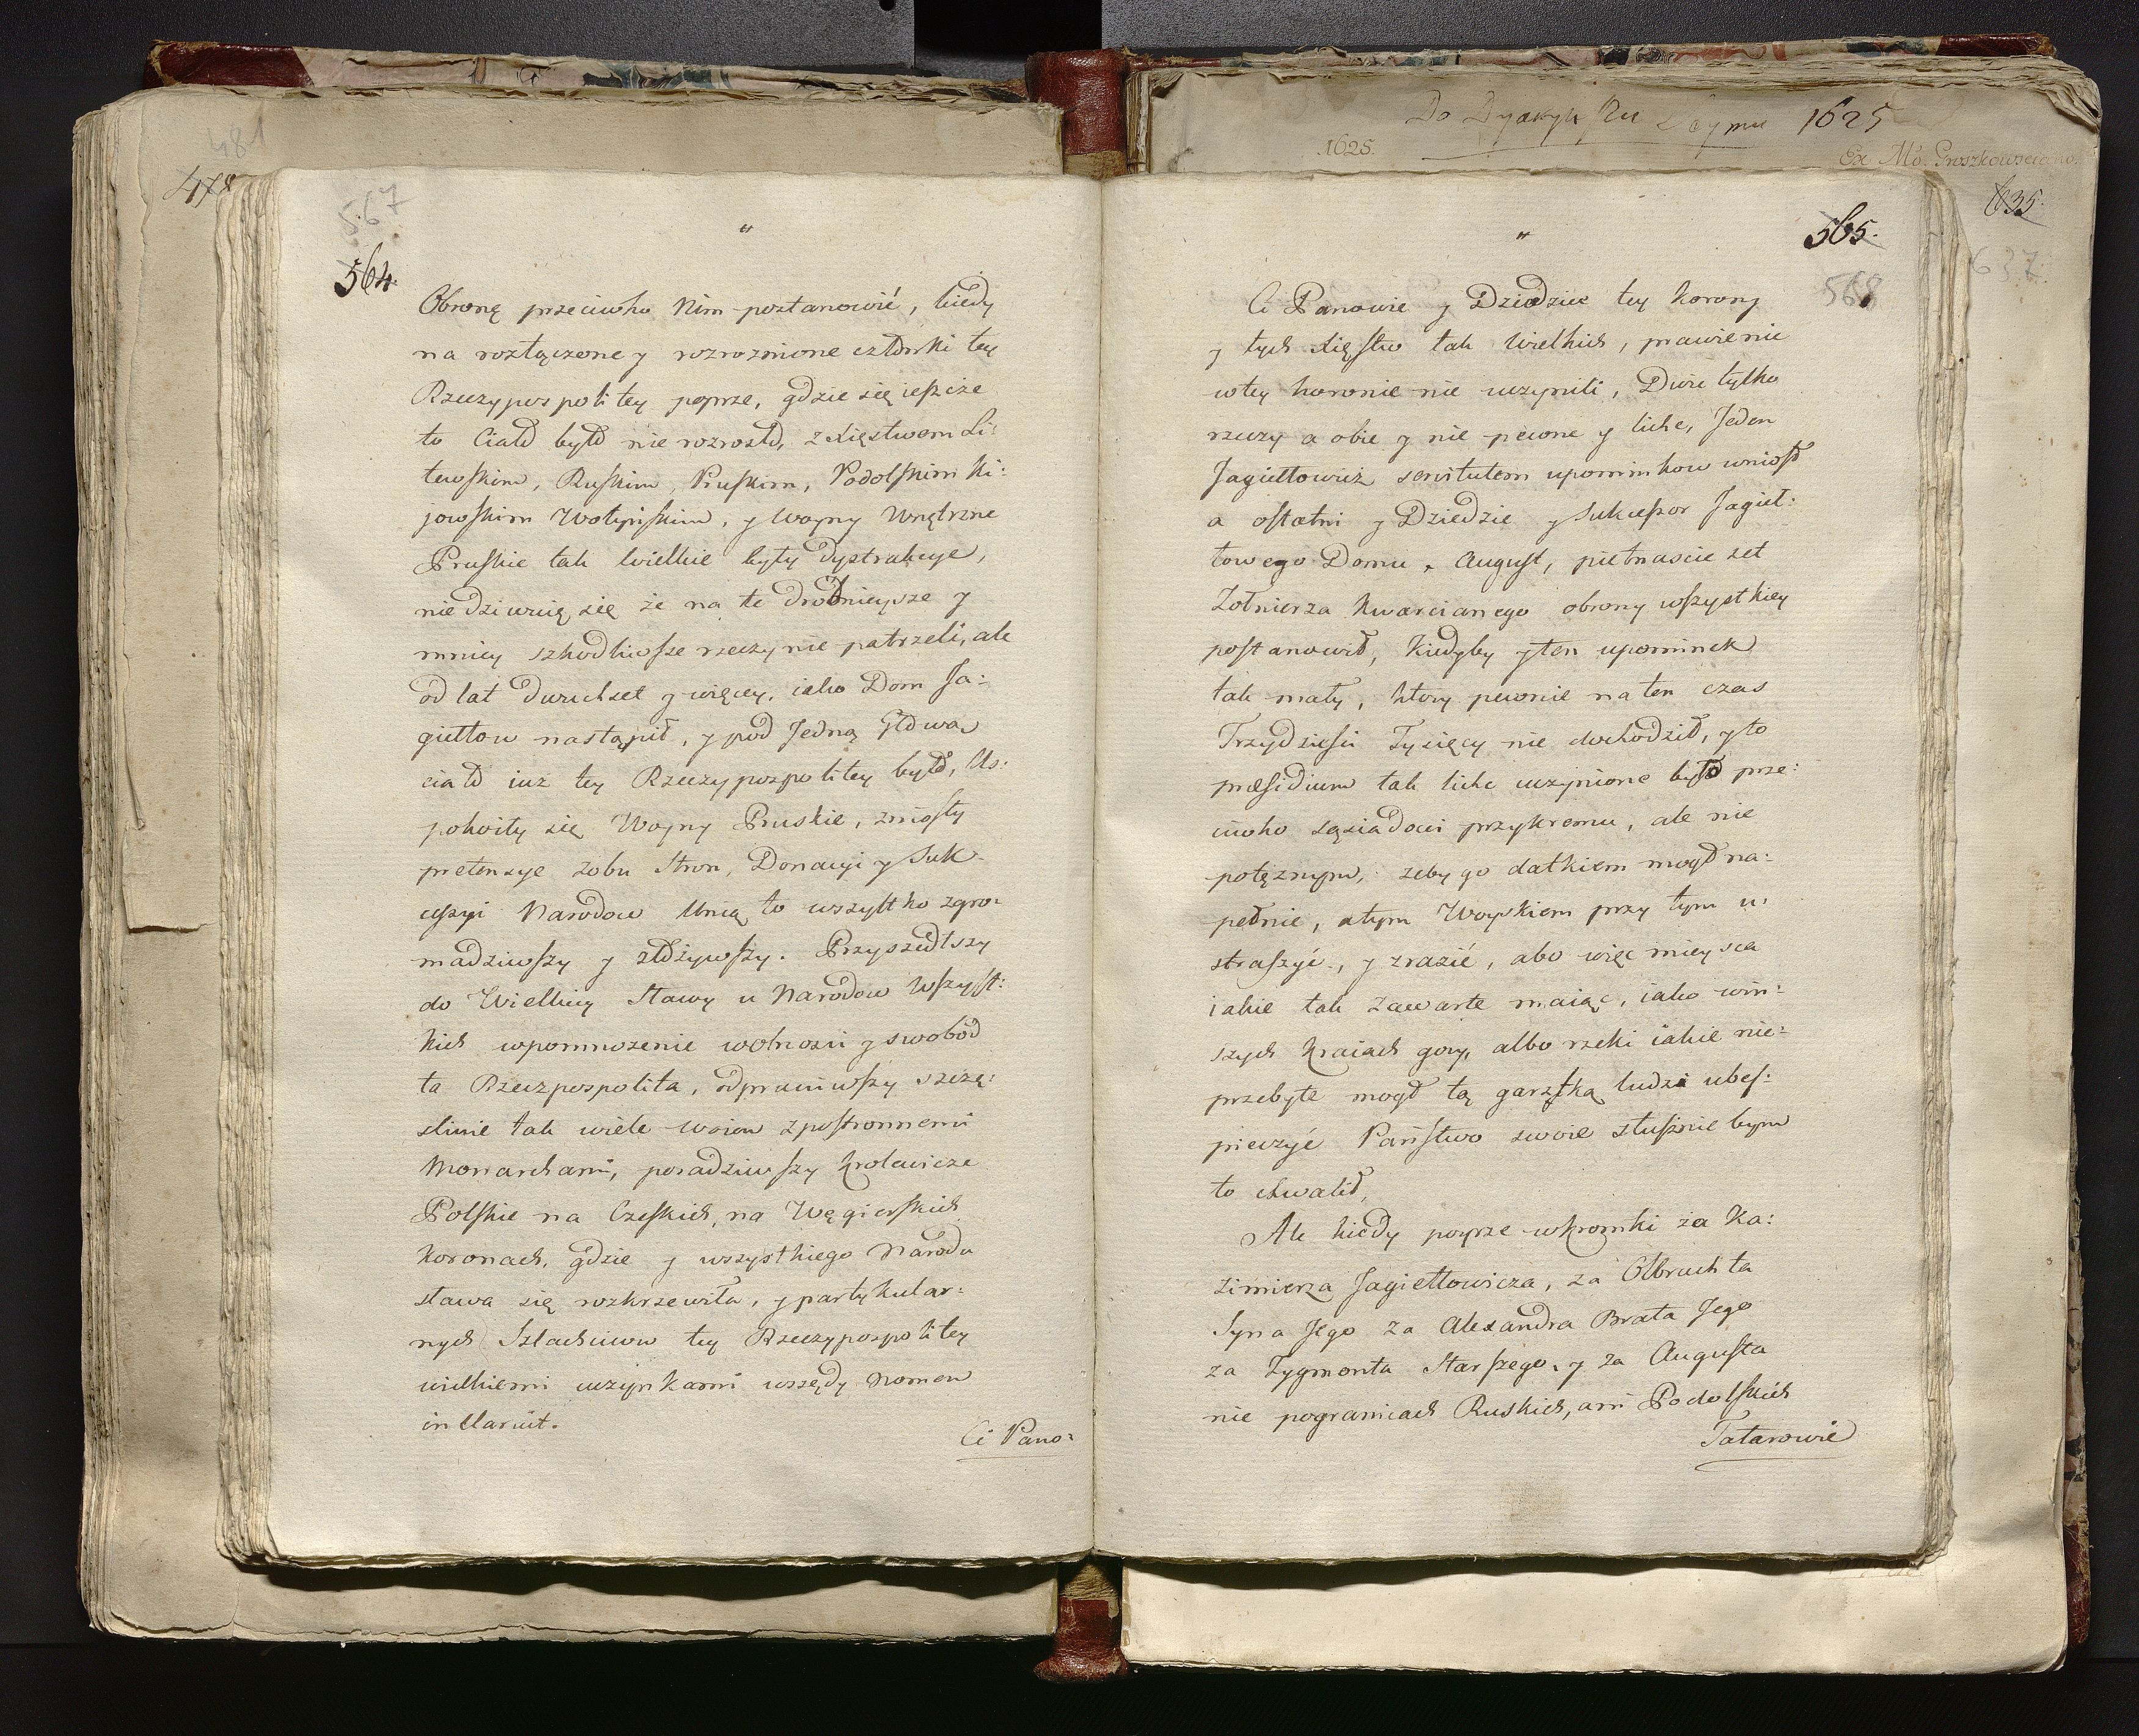 481
478
567
564.
Obronę przeciwko Nim postanowić, kiedy
na roztączone y rozroznione członki tey
Rzeczypospolitey poprze, gdzie się ieszcze
to Ciało było nie rozrosło, z Xięstwem Li:
tewskim, Ruskim, Pruskim, Podolskim Ki:
jowskim Wołyńskim, y Woyny Wnętrzne
Pruskie tak wielkie były dystrakcye,
nie dziwuię się że na te drobnieysze y
mniey szkodliwsze rzeczy nie patrzeli, ale
od lat dwuchset y więcey, iako Dom Ja:
giełłow nastąpił, y pod Jedną Głową
ciało iuż tey Rzeczypospolitey było, Us:
pokoiły się Woyny Pruskie, zniosły
pretensye zobu Stron, Donacyi y Suk-
cessyi Narodow Unią to wszystko zgro:
madziwszy y złożywszy. Przyszedłszy
do Wielkiey Sławy u Narodow Wszyst:
kich wpomnożenie wolności y swobod
ta Rzeczpospolita, odprawiwszy szczę:
sliwie tak wiele woien zpostronnemi
Monarchami, posadziwszy Krolewicze
Polskie na Czeskich, na Węgierskich
Koronach, gdzie y wszystkiego Narodu
sława się rozkrzewiła, y partykular:
nych Szlachciow tey Rzeczypospolitey
wielkiemi uczynkami wszędy nomen
inclaruit.
Ci Pano:
Do Dyaryu Szu Seymu 1625
1625.
Ex Mó. Groszkowsciano.
635.
637.
565.
568
Ci Panowie y Dziedzice tey Korony
y tych Xięstw tak Wielkich, prawie nic
wtey Koronie nie uczynili, Dwie tylko
rzeczy a obie y nie pewne y liche, Jeden
Jagiełłowicz servitutem upominkow wniosł
a ostatni y Dziedzic y Sukcessor Jagieł:
łowego Domu, August, piętnascie set
Żołnierza Kwarcianego obrony wszystkiey
postanowił, Kiedyby y ten upominek
tak mały, ktory pewnie na ten czas
Trzydziesci Tysięcy nie dochodził, y to
præsidium tak liche uczynione było prze:
ciwko sąsiadowi przykremu, ale nie
potęznym, zeby go datkiem mogł na:
pełnić, a tym Woyskiem przy tym u:
straszyć, y zrazić, abo więc mieysca
iakie tak zawarte maiąc, iako win:
szych Kraiach gory, albo rzeki iakie nie:
przebyte mogł tą garztką ludzi ubes:
pieczyć Państwo swoie słusznie bym
to chwalił,
Ale kiedy poyrze wkromki za Ka:
zimierza Jagiełłowicza, za Olbrachta
Syna Jego za Alexandra Brata Jego
za Zygmonta Starszego, y za Augusta
nie pograniczach Ruskich, ani Podolskich
Tatarowie